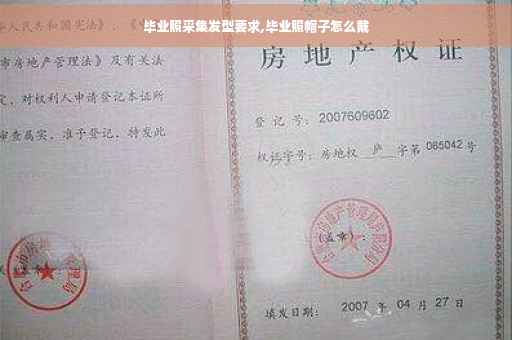 毕业照采集发型要求,毕业照帽子怎么戴
华人民共和国宪法》、《
市房地产管理法》及有关法
定，对权利人申请登记本证所
审查属实，准予登记，特发此
房地产权证
登记号：2007609602
权证字号：房地权 庐 字第 085042 号
(盖章)：
填发日期：2007 年 04 月 27 日